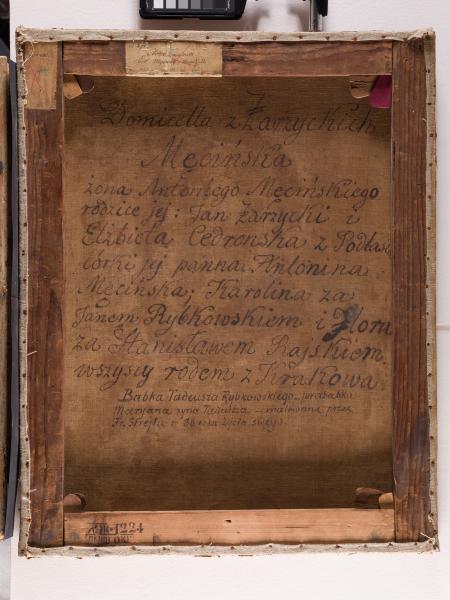 Domicella z Zarzyckich
Męcińska
żona Antoniego Męcińskiego
rodzice jej: Jan Zarzycki i
Elżbieta Cedrońska z Podlasi
córki jej panna Antonina
Męcińska; Karolina za
Janem Rybkowskiem i Flora
za Stanisławem Rajskiem
wszyscy rodem z Krakowa.
Babka Tadeusza Rybkowskiego - prababka
Maryana syna Tadeusza - malowana przez
Fr. Strejta w 86 roku życia swego
1224